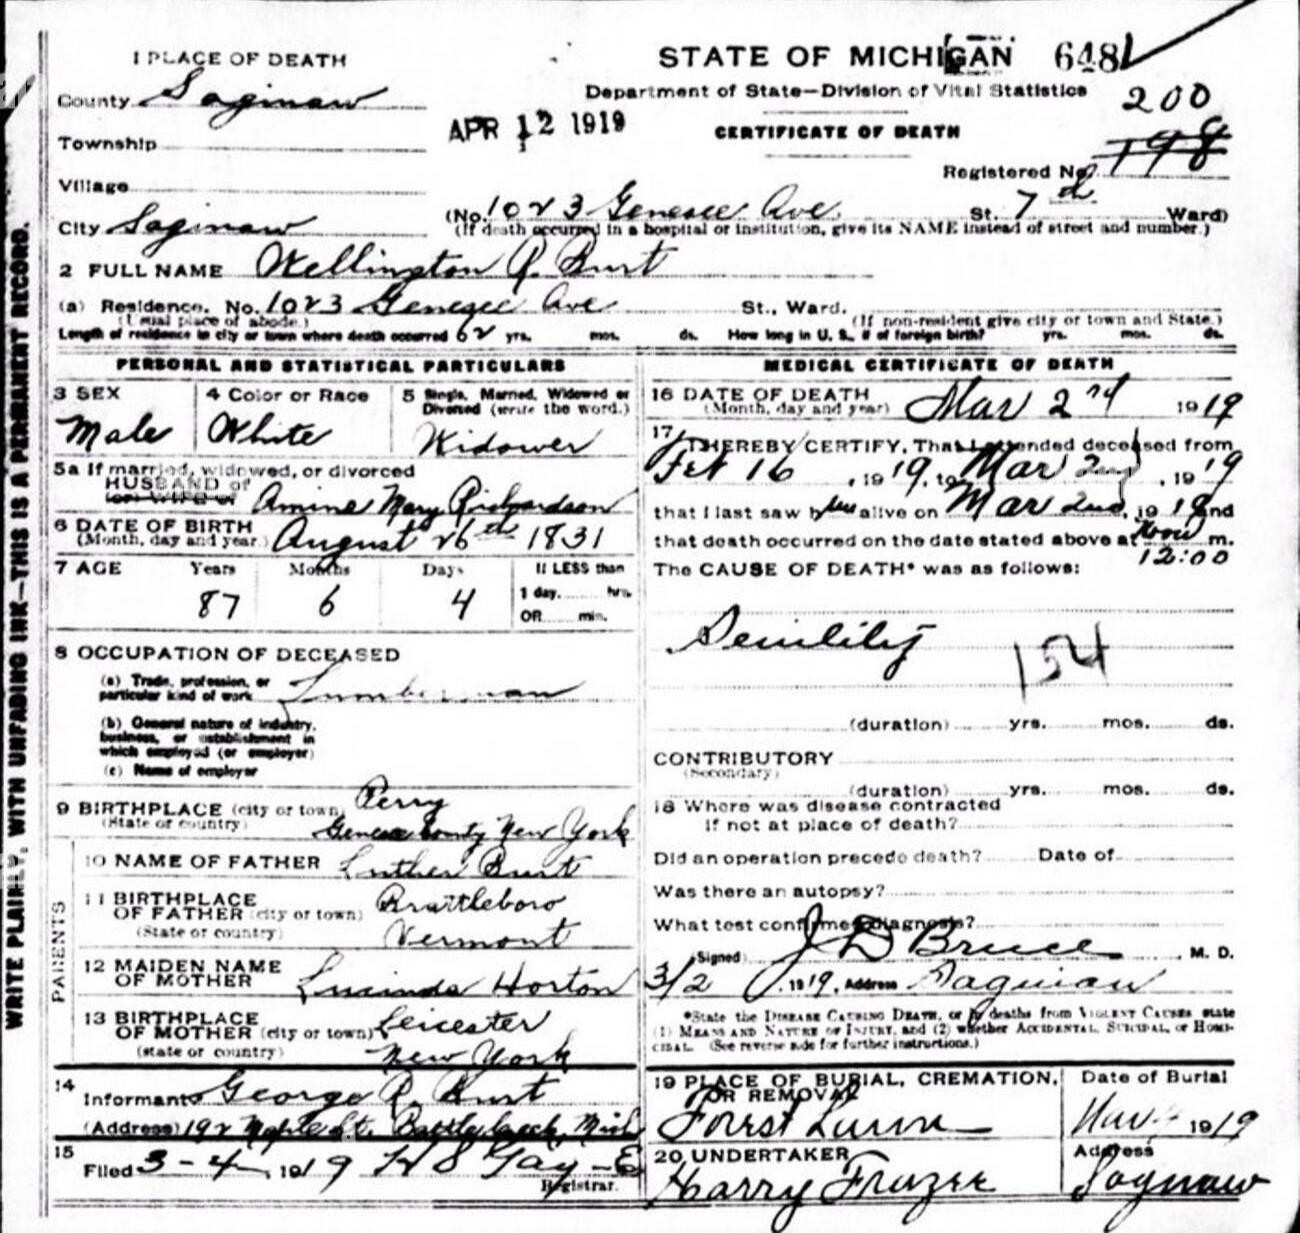 1 PLACE OF DEATH
STATE OF MICHIGAN 648
Department of State—Division of Vital Statistics
County Saginaw
APR 12 1919
CERTIFICATE OF DEATH
200
Township
Registered No. 198
Village
City Saginaw
(No. 1023 Genesee Ave. St. 7th Ward)
(If death occurred in a hospital or institution, give its NAME instead of street and number.)
2 FULL NAME Wellington R. Burt
(a) Residence. No. 1023 Genesee Ave St., Ward.
(Usual place of abode.) (If non-resident give city or town and State.)
Length of residence in city or town where death occurred 62 yrs. mos. ds. How long in U. S., if of foreign birth? yrs. mos. ds.
PERSONAL AND STATISTICAL PARTICULARS
3 SEX
Male
4 Color or Race
White
5 Single, Married, Widowed or
Divorced (write the word.)
Widower
5a If married, widowed, or divorced
HUSBAND of
(or) WIFE of Amine Mary Richardson
6 DATE OF BIRTH
(Month, day and year.) August 26th 1831
7 AGE Years Months Days If LESS than
87 6 4 1 day, hrs.
OR min.
8 OCCUPATION OF DECEASED
(a) Trade, profession, or
particular kind of work Lumberman
(b) General nature of industry,
business, or establishment in
which employed (or employer)
(c) Name of employer
9 BIRTHPLACE (city or town) Perry
(State or country) Genesee County New York
PARENTS
10 NAME OF FATHER Luther Burt
11 BIRTHPLACE
OF FATHER (city or town) Brattleboro
(State or country) Vermont
12 MAIDEN NAME
OF MOTHER Lucinda Horton
13 BIRTHPLACE
OF MOTHER (city or town) Leicester
(state or country) New York
14
Informant George R. Burt
(Address) 192 Maple St. Battle Creek, Mich
15
Filed 3-4, 1919 Registrar.
MEDICAL CERTIFICATE OF DEATH
16 DATE OF DEATH
(Month, day and year) Mar 2nd 1919
17
I HEREBY CERTIFY, That I attended deceased from
Feb 16, 1919, to Mar 2nd, 1919
that I last saw him alive on Mar 2nd, 1919 and
that death occurred on the date stated above at Noon m.
12:00
The CAUSE OF DEATH* was as follows:
Senility
154
(duration) yrs. mos. ds.
CONTRIBUTORY
(Secondary)
(duration) yrs. mos. ds.
18 Where was disease contracted
if not at place of death?
Did an operation precede death? Date of
Was there an autopsy?
What test confirmed diagnosis?
(Signed) J D Bruce M. D.
3/2, 1919, Address Saginaw
*State the DISEASE CAUSING DEATH, or in deaths from VIOLENT CAUSES state
(1) MEANS AND NATURE OF INJURY, and (2) whether ACCIDENTAL, SUICIDAL, or HOMI-
CIDAL. (See reverse side for further instructions.)
19 PLACE OF BURIAL, CREMATION,
OR REMOVAL
Forest Lawn
Date of Burial
Mar 4 1919
20 UNDERTAKER
Harry Frazee
Address
Saginaw
WRITE PLAINLY, WITH UNFADING INK—THIS IS A PERMANENT RECORD.